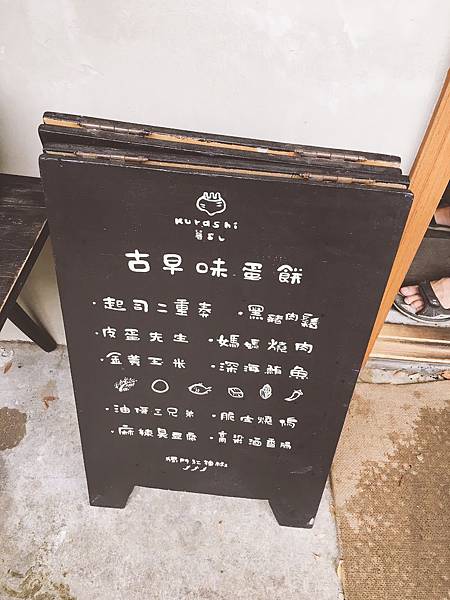 kurashi
暮らし
古早味蛋餅
・起司二重奏 ・黑豬肉鬆
・皮蛋先生 ・媽媽燒肉
・金黃玉米 ・深海鮪魚
・油條三兄弟 ・脆皮燒鴨
・麻辣臭豆腐 ・高粱酒香腸